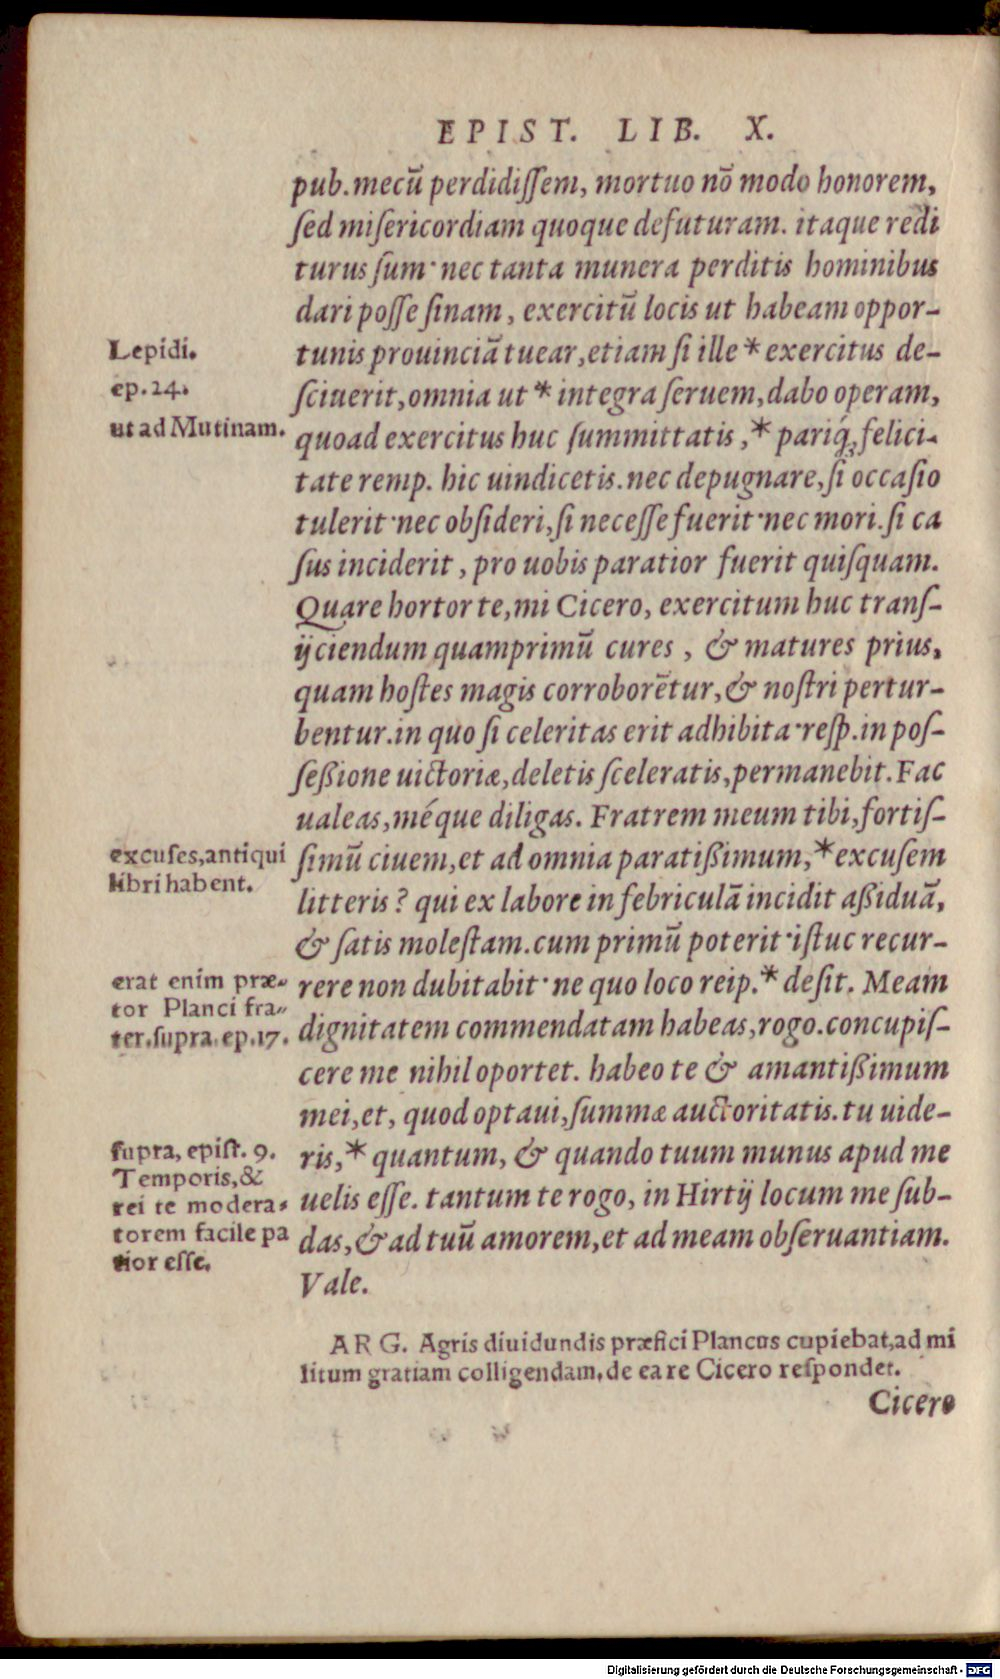 EPIST. LIB. X.
pub. mecū perdidiſſem, mortuo nō modo honorem,
ſed miſericordiam quoque defuturam. itaque redi
turus ſum· nec tanta munera perditis hominibus
dari poſſe ſinam, exercitū locis ut habeam oppor-
tunis prouinciā tuear, etiam ſi ille * exercitus de-
ſciuerit, omnia ut * integra ſeruem, dabo operam,
quoad exercitus huc ſummittatis, * pariq́; felici-
tate remp. hic uindicetis. nec depugnare, ſi occaſio
tulerit· nec obſideri, ſi neceſſe fuerit· nec mori. ſi ca
ſus inciderit, pro uobis paratior fuerit quiſquam.
Quare hortor te, mi Cicero, exercitum huc tranſ-
ijciendum quamprimū cures, & matures prius,
quam hoſtes magis corroborētur, & noſtri pertur-
bentur. in quo ſi celeritas erit adhibita· reſp. in poſ-
ſeßione uictoriæ, deletis ſceleratis, permanebit. Fac
ualeas, méque diligas. Fratrem meum tibi, fortiſ-
ſimū ciuem, et ad omnia paratißimum, * excuſem
litteris? qui ex labore in febriculā incidit aßiduā,
& ſatis moleſtam. cum primū poterit· iſtuc recur-
rere non dubitabit· ne quo loco reip. * deſit. Meam
dignitatem commendatam habeas, rogo. concupiſ-
cere me nihil oportet. habeo te & amantißimum
mei, et, quod optaui, ſummæ auctoritatis. tu uide-
ris, * quantum, & quando tuum munus apud me
uelis eſſe. tantum te rogo, in Hirtij locum me ſub-
das, & ad tuū amorem, et ad meam obſeruantiam.
Vale.
Lepidi.
ep. 24.
ut ad Mutinam.
excuſes, antiqui
libri habent.
erat enim præ-
tor Planci fra-
ter. ſupra. ep. 17.
ſupra, epiſt. 9.
Temporis, &
rei te modera-
torem facile pa
tior eſſe.
ARG. Agris diuidundis præfici Plancus cupiebat, ad mi
litum gratiam colligendam. de ea re Cicero reſpondet.
Cicero
Digitalisierung gefördert durch die Deutsche Forschungsgemeinschaft - DFG